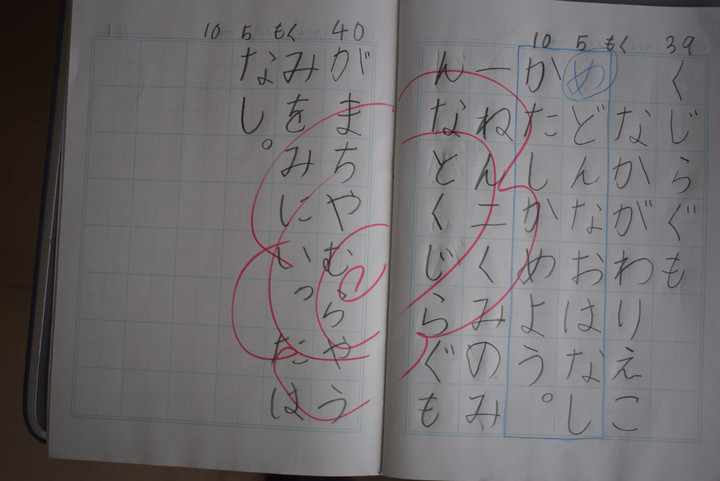 39 もく 5 10
くじらぐも
なかがわりえこ
めどんなおはなし
かたしかめよう。
一ねん二くみのみ
んなとくじらぐも
40 もく 5 10
がまちやむらやう
みをみにいったは
なし。